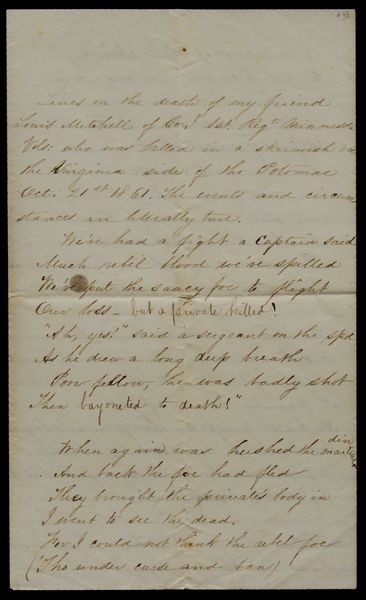 Lines on the death of my friend
Louis Mitchell of Co. 1st. Regt Minnesota
Vols: who was killed in a skirmish on
the Virginia side of the Potomac
Oct: 21st 1861. The events and circum
stances are literally true.
We've had a fight a Captain said
Much rebel blood we've spilled
We've put the saucy foe to flight
Our loss - but a private killed!
"Ah, yes!" said a sergeant on the spot
As he drew a long deep breath
Poor fellow, he was badly shot
Then bayoneted to death!"
When again was hushed the martial din
And back the foe had fled
They brought the private's body in
I went to see the dead.
For I could not think the rebel foe
('Tho under curse and ban)